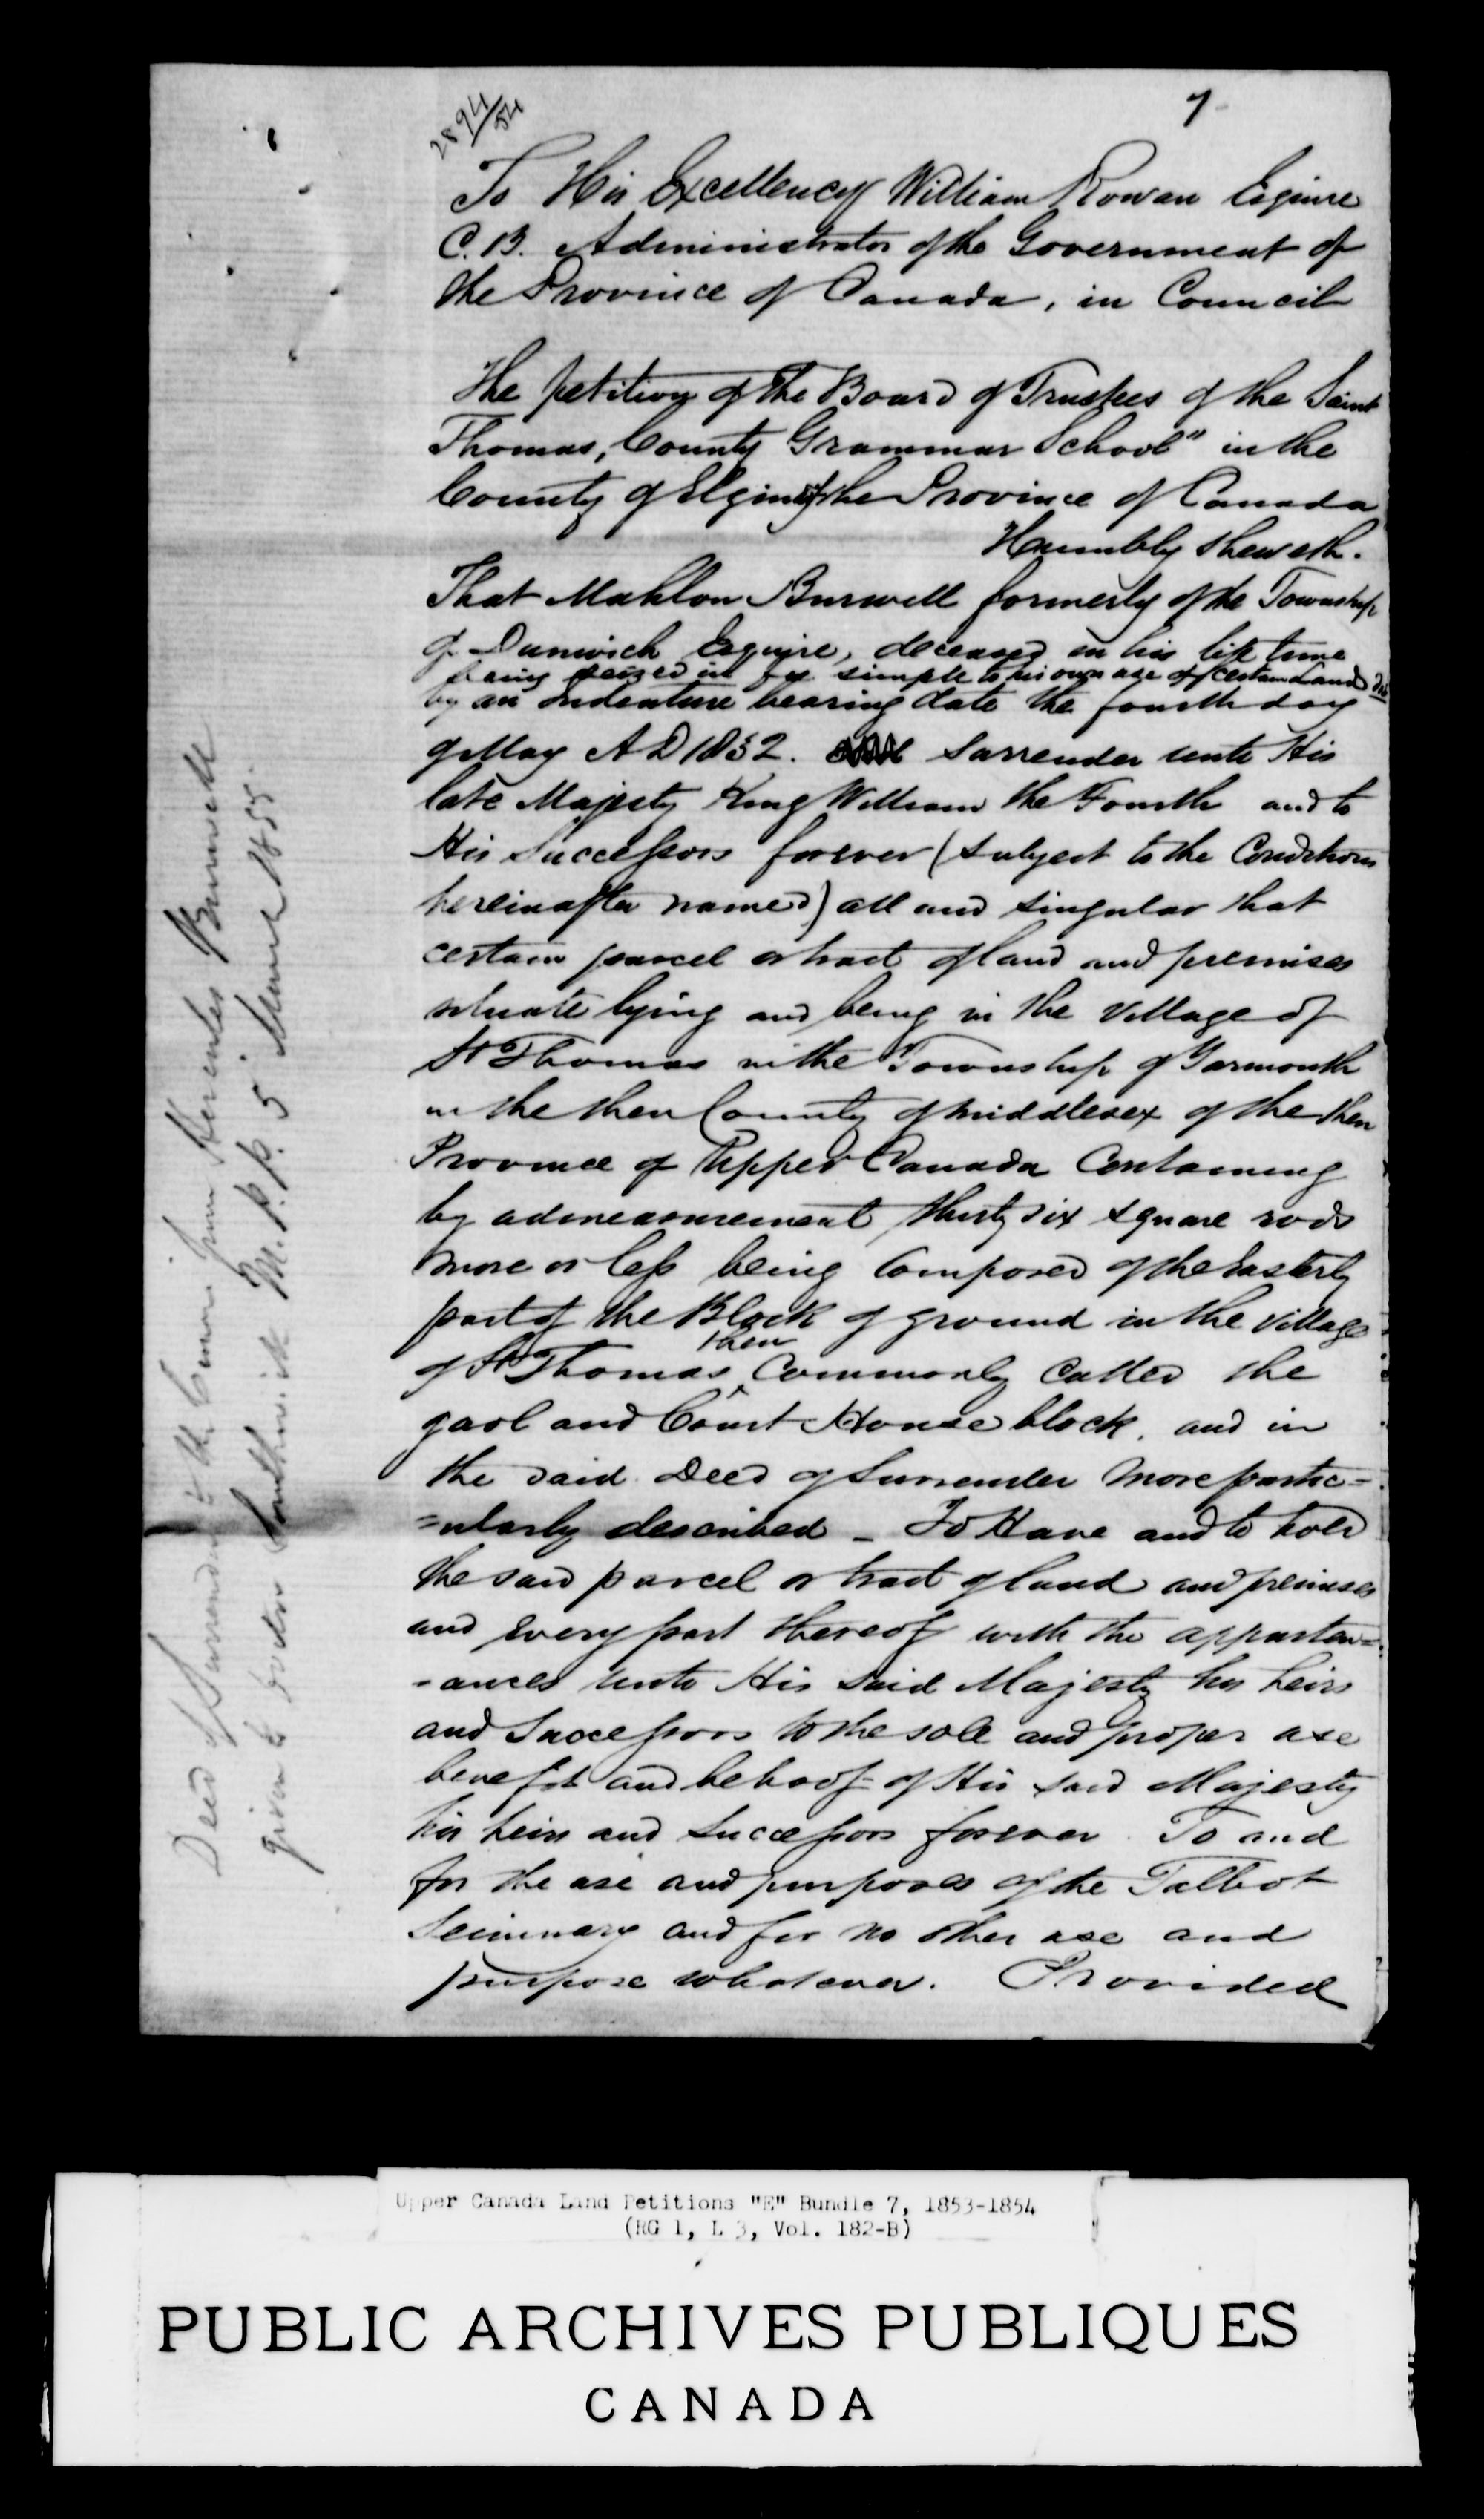 2894/54
7
To His Excellency William Rowan Esquire
C.B. Administrator of the Government of
the Province of Canada, in Council
The petition of the Board of Trustees of the Saint
Thomas, County Grammar School" in the
County of Elgin of the Province of Canada
Humbly sheweth.
That Mahlon Burwell formerly of the Township
of Dunwich Esquire, deceased in his life time
being seized in fee simple to his own use of certain Land did
by an Indenture bearing date the fourth day
of May A D 1832. surrender unto His
late Majesty King William the Fourth and to
His Successors forever (subject to the Conditions
hereinafter named) all and singular that
certain parcel or tract of land and premises
situate lying and being in the Village of
St Thomas in the Township of Yarmouth
in the then County of Middlesex of the then
Province of Upper Canada Containing
by admeasurement thirty six square rods
more or less being Composed of the Easterly
part of the Block of ground in the Village
of St Thomas then Commonly Called the
gaol and Court House block, and in
the said Deed of Surrender more partic=
=ularly described _ To Have and to hold
the said parcel or tract of land and premises
and every part thereof with the appurten=
-ances unto His said Majesty his heirs
and Successors to the sole and proper use
benefit and behoof of His said Majesty
his heirs and Successors forever To and
for the use and purposes of the Talbot
Seminary and for no other use and
purpose whatever. Provided
Deed of Surrender to the Crown from Hercules Burwell
given to Doctor Southwick M.P.P. 5 March 1855.
Upper Canada Land Petitions "E" Bundle 7, 1853-1854
(RG 1, L 3, Vol. 182-B)
PUBLIC ARCHIVES PUBLIQUES
CANADA